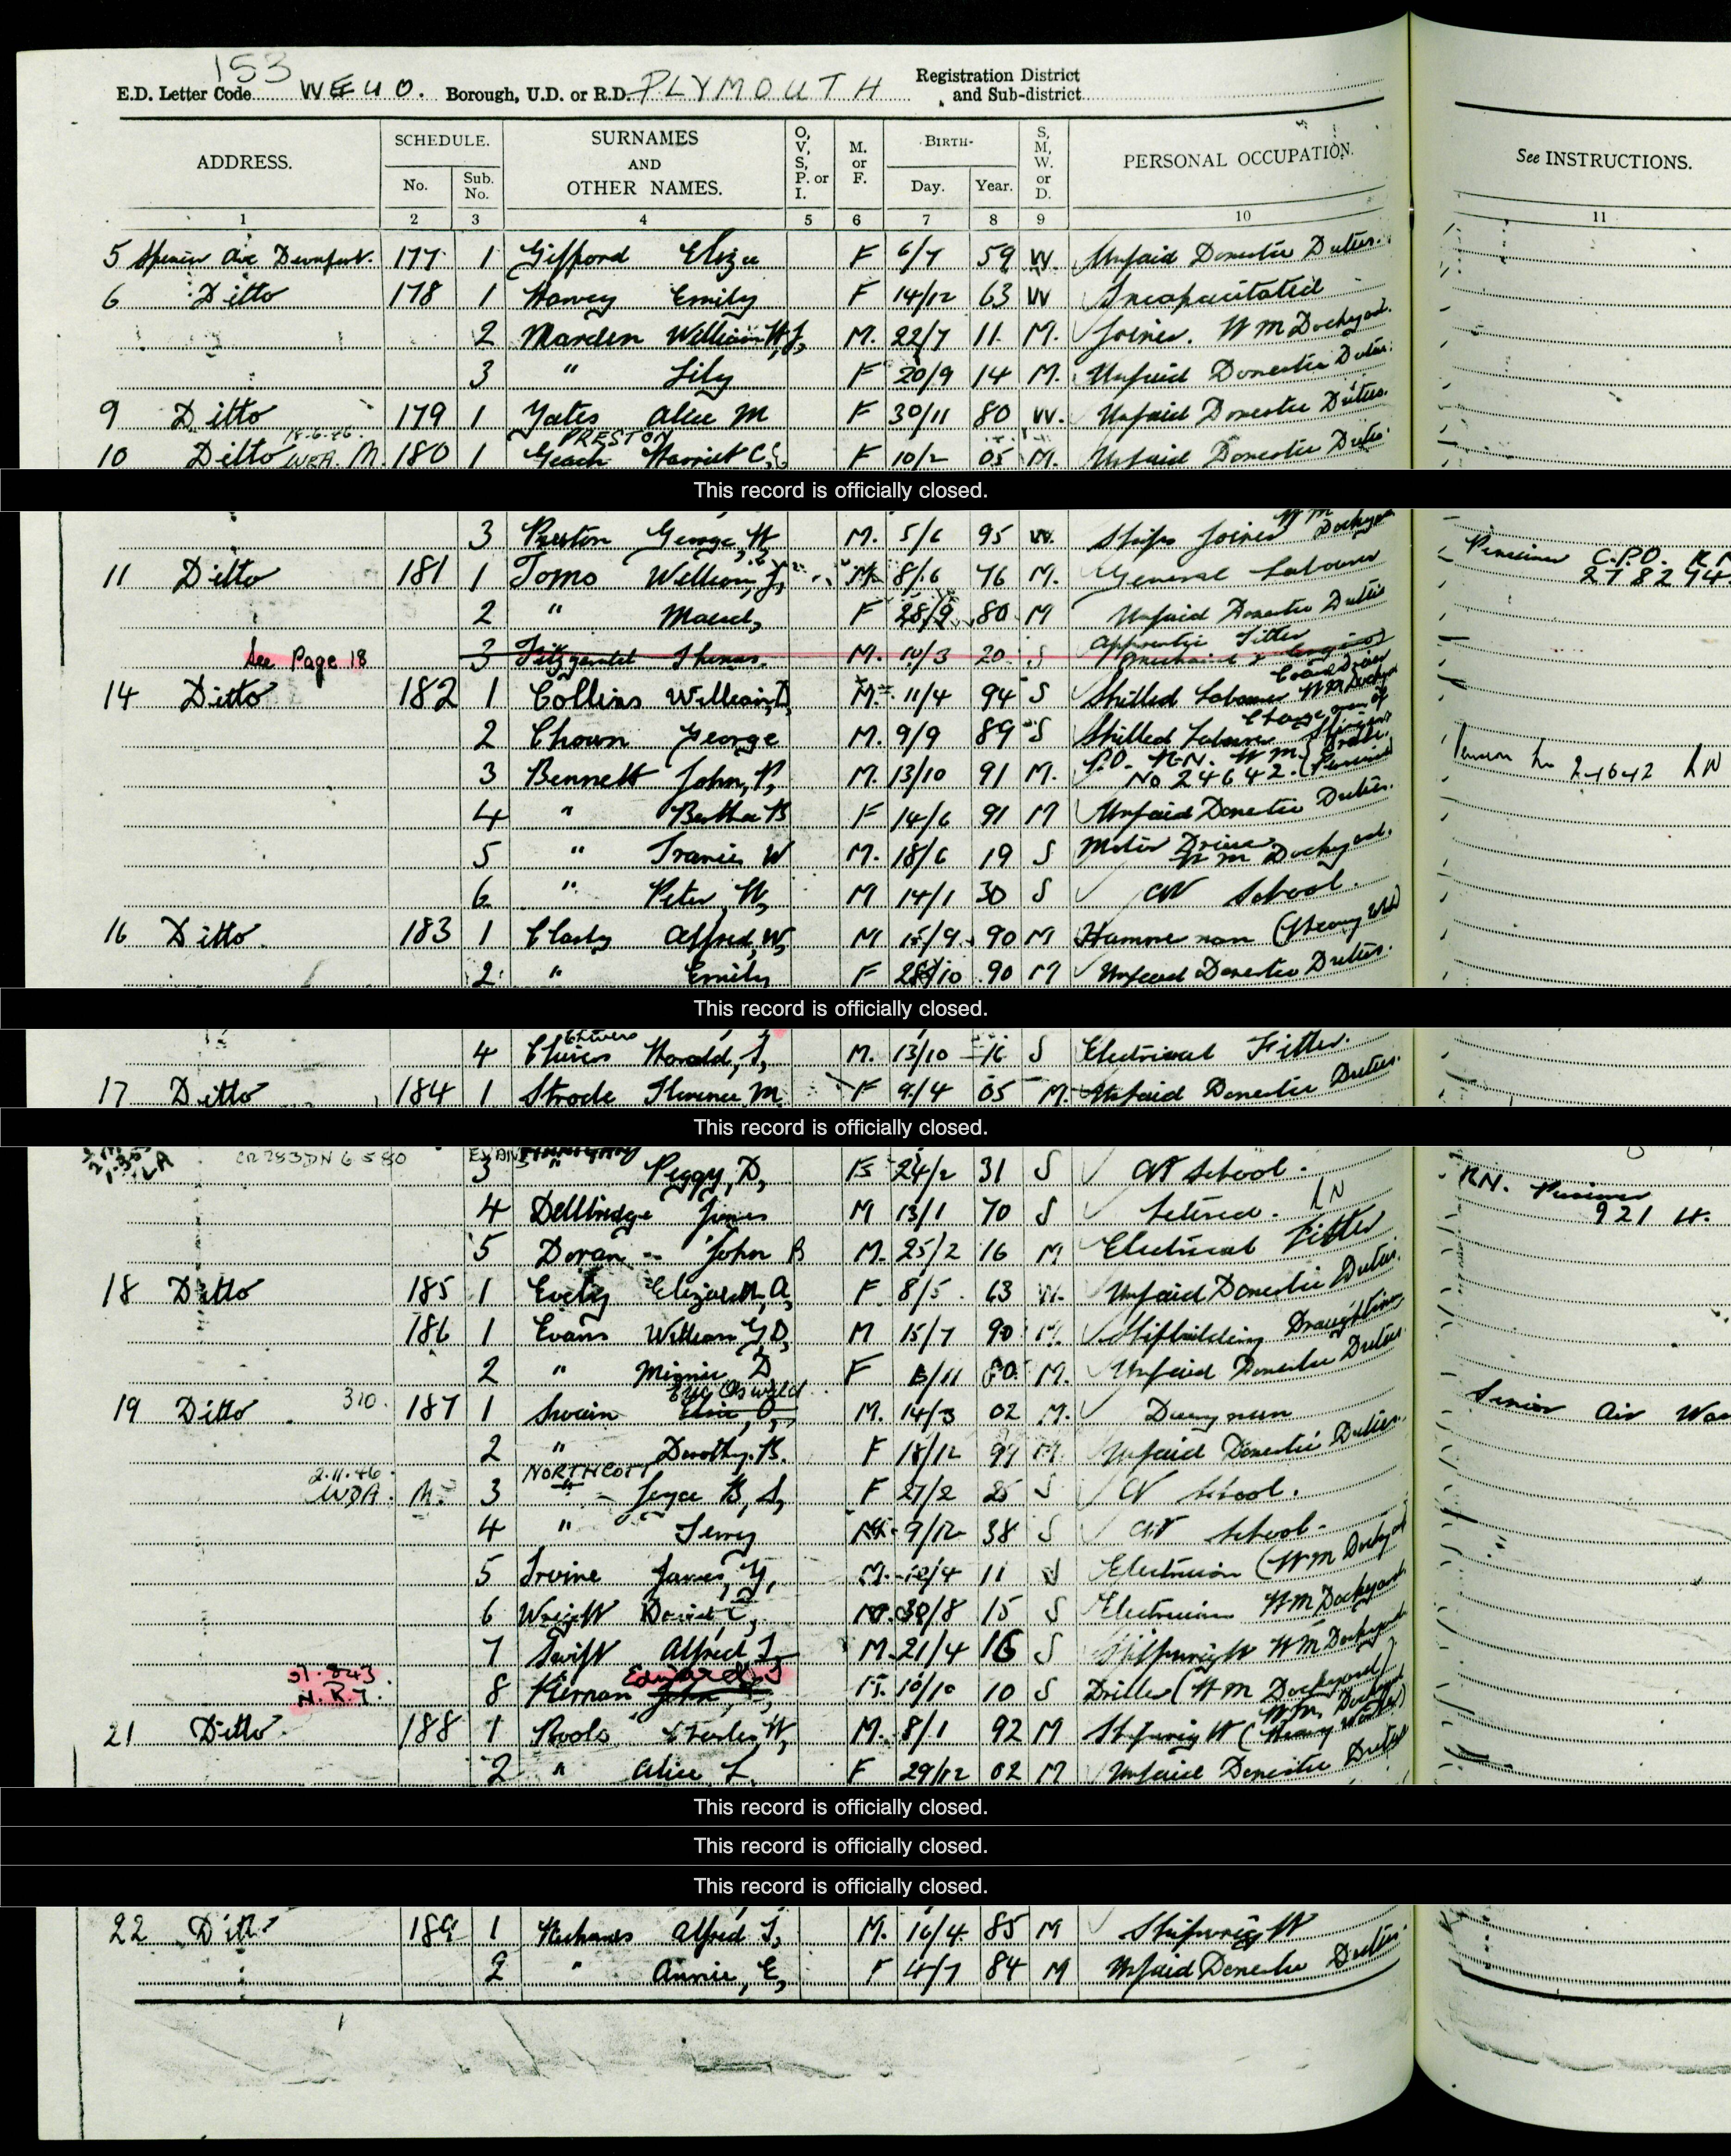 153
E.D. Letter Code WEUO. Borough, U.D. or R.D. PLYMOUTH Registration District and Sub-district
ADDRESS. SCHEDULE. SURNAMES AND OTHER NAMES. O, V, S, P. or I. M. or F. BIRTH- S, M, W. or D. PERSONAL OCCUPATION. See INSTRUCTIONS.
No. Sub. No. Day. Year.
1 2 3 4 5 6 7 8 9 10 11
5 Ave Devonport. 177 1 Gifford Eliza F 6/7 59 W. Unpaid Domestic Duties.
6 Ditto 178 1 Harvey Emily F 14/12 63 W Incapacitated
2 Marden William H J, M. 22/7 11 M. Joiner. H M Dockyard.
3 " Lily F 20/9 14 M. Unpaid Domestic Duties.
9 Ditto 179 1 Yates Alice M F 30/11 80 W. Unpaid Domestic Duties.
18-6-46. PRESTON
10 Ditto M. 180 1 Geach Harriet C. F 10/2 05 M. Unpaid Domestic Duties
This record is officially closed.
3 Preston George, H, M. 5/6 95 W. Ships Joiner H M Dockyard
11 Ditto 181 1 Toms William, J, M 8/6 76 M. General Labourer Pensioner C.P.O. R N 278274
2 " Maud, F 28/9 80 M Unpaid Domestic Duties
See Page 18 3 Fitzgerald Thomas. M. 10/3 20 S Apprentice Fitter
14 Ditto 182 1 Collins William, M. 11/4 94 S Skilled Labourer H M Dockyard
2 Chown George M. 9/9 89 S Skilled Labourer
3 Bennett John, P, M. 13/10 91 M. P.O. R.N. No 24642. Pension
4 " Bertha B F 14/6 91 M Unpaid Domestic Duties.
5 " Francis W M. 18/6 19 S Motor Driver H M Dockyard.
6 " Peter, H, M 14/1 30 S At School.
16 Ditto. 183 1 Alfred, W, M 15/9 90 M Hammerman (Heavy Wkr)
2 " Emily F 28/10 90 M Unpaid Domestic Duties.
This record is officially closed.
Chivers
4 Harold, M. 13/10 16 S Electrical Fitter.
17 Ditto 184 1 Strode Florence M. F 9/4 05 M. Unpaid Domestic Duties.
This record is officially closed.
CR 783 DN 6580 EVANS
3 " Peggy, D, F 24/2 31 S At School.
4 Dellbridge James M 13/1 70 S Retired. R N R.N. Pensioner 921
5 Doran John B M. 25/2 16 M Electrical Fitter
18 Ditto 185 1 Evely Elizabeth, A, F 8/5 63 W. Unpaid Domestic Duties.
186 1 Evans William G D, M 15/7 90 M. Shipbuilding Draughtsman
2 " Minnie D F /11 M. Unpaid Domestic Duties
Eric Oswald
19 Ditto. 310. 187 1 Swain O, M. 14/3 02 M. Dairyman Senior Air
2 " Dorothy. B. F 18/12 99 M. Unpaid Domestic Duties.
2.11.46. NORTHCOTT
M. 3 " Joyce B, S, F 27/2 25 S At School.
4 " Terry M 9/12 38 S At School
5 Irvine James, Y, M. /4 11 S Electrician (H M Dockyard
6 Wright David 30/8 15 S Electrician H M Dockyard
7 Swift Alfred M. 21/4 16 S Shipwright H M Dockyard
N. R. 7. 8 Kiernan John, 10/10 10 S Driller (H M Dockyard)
21 Ditto. 188 1 Poole Charles, W, M. 8/1 92 M Shipwright (Heavy Worker) H M. Dockyard
2 " Alice L. F 29/12 02 M Unpaid Domestic Duties
This record is officially closed.
This record is officially closed.
This record is officially closed.
22 Ditto 189 1 Alfred J, M. 16/4 85 M Shipwright
2 " Annie, E, F 4/7 84 M Unpaid Domestic Duties